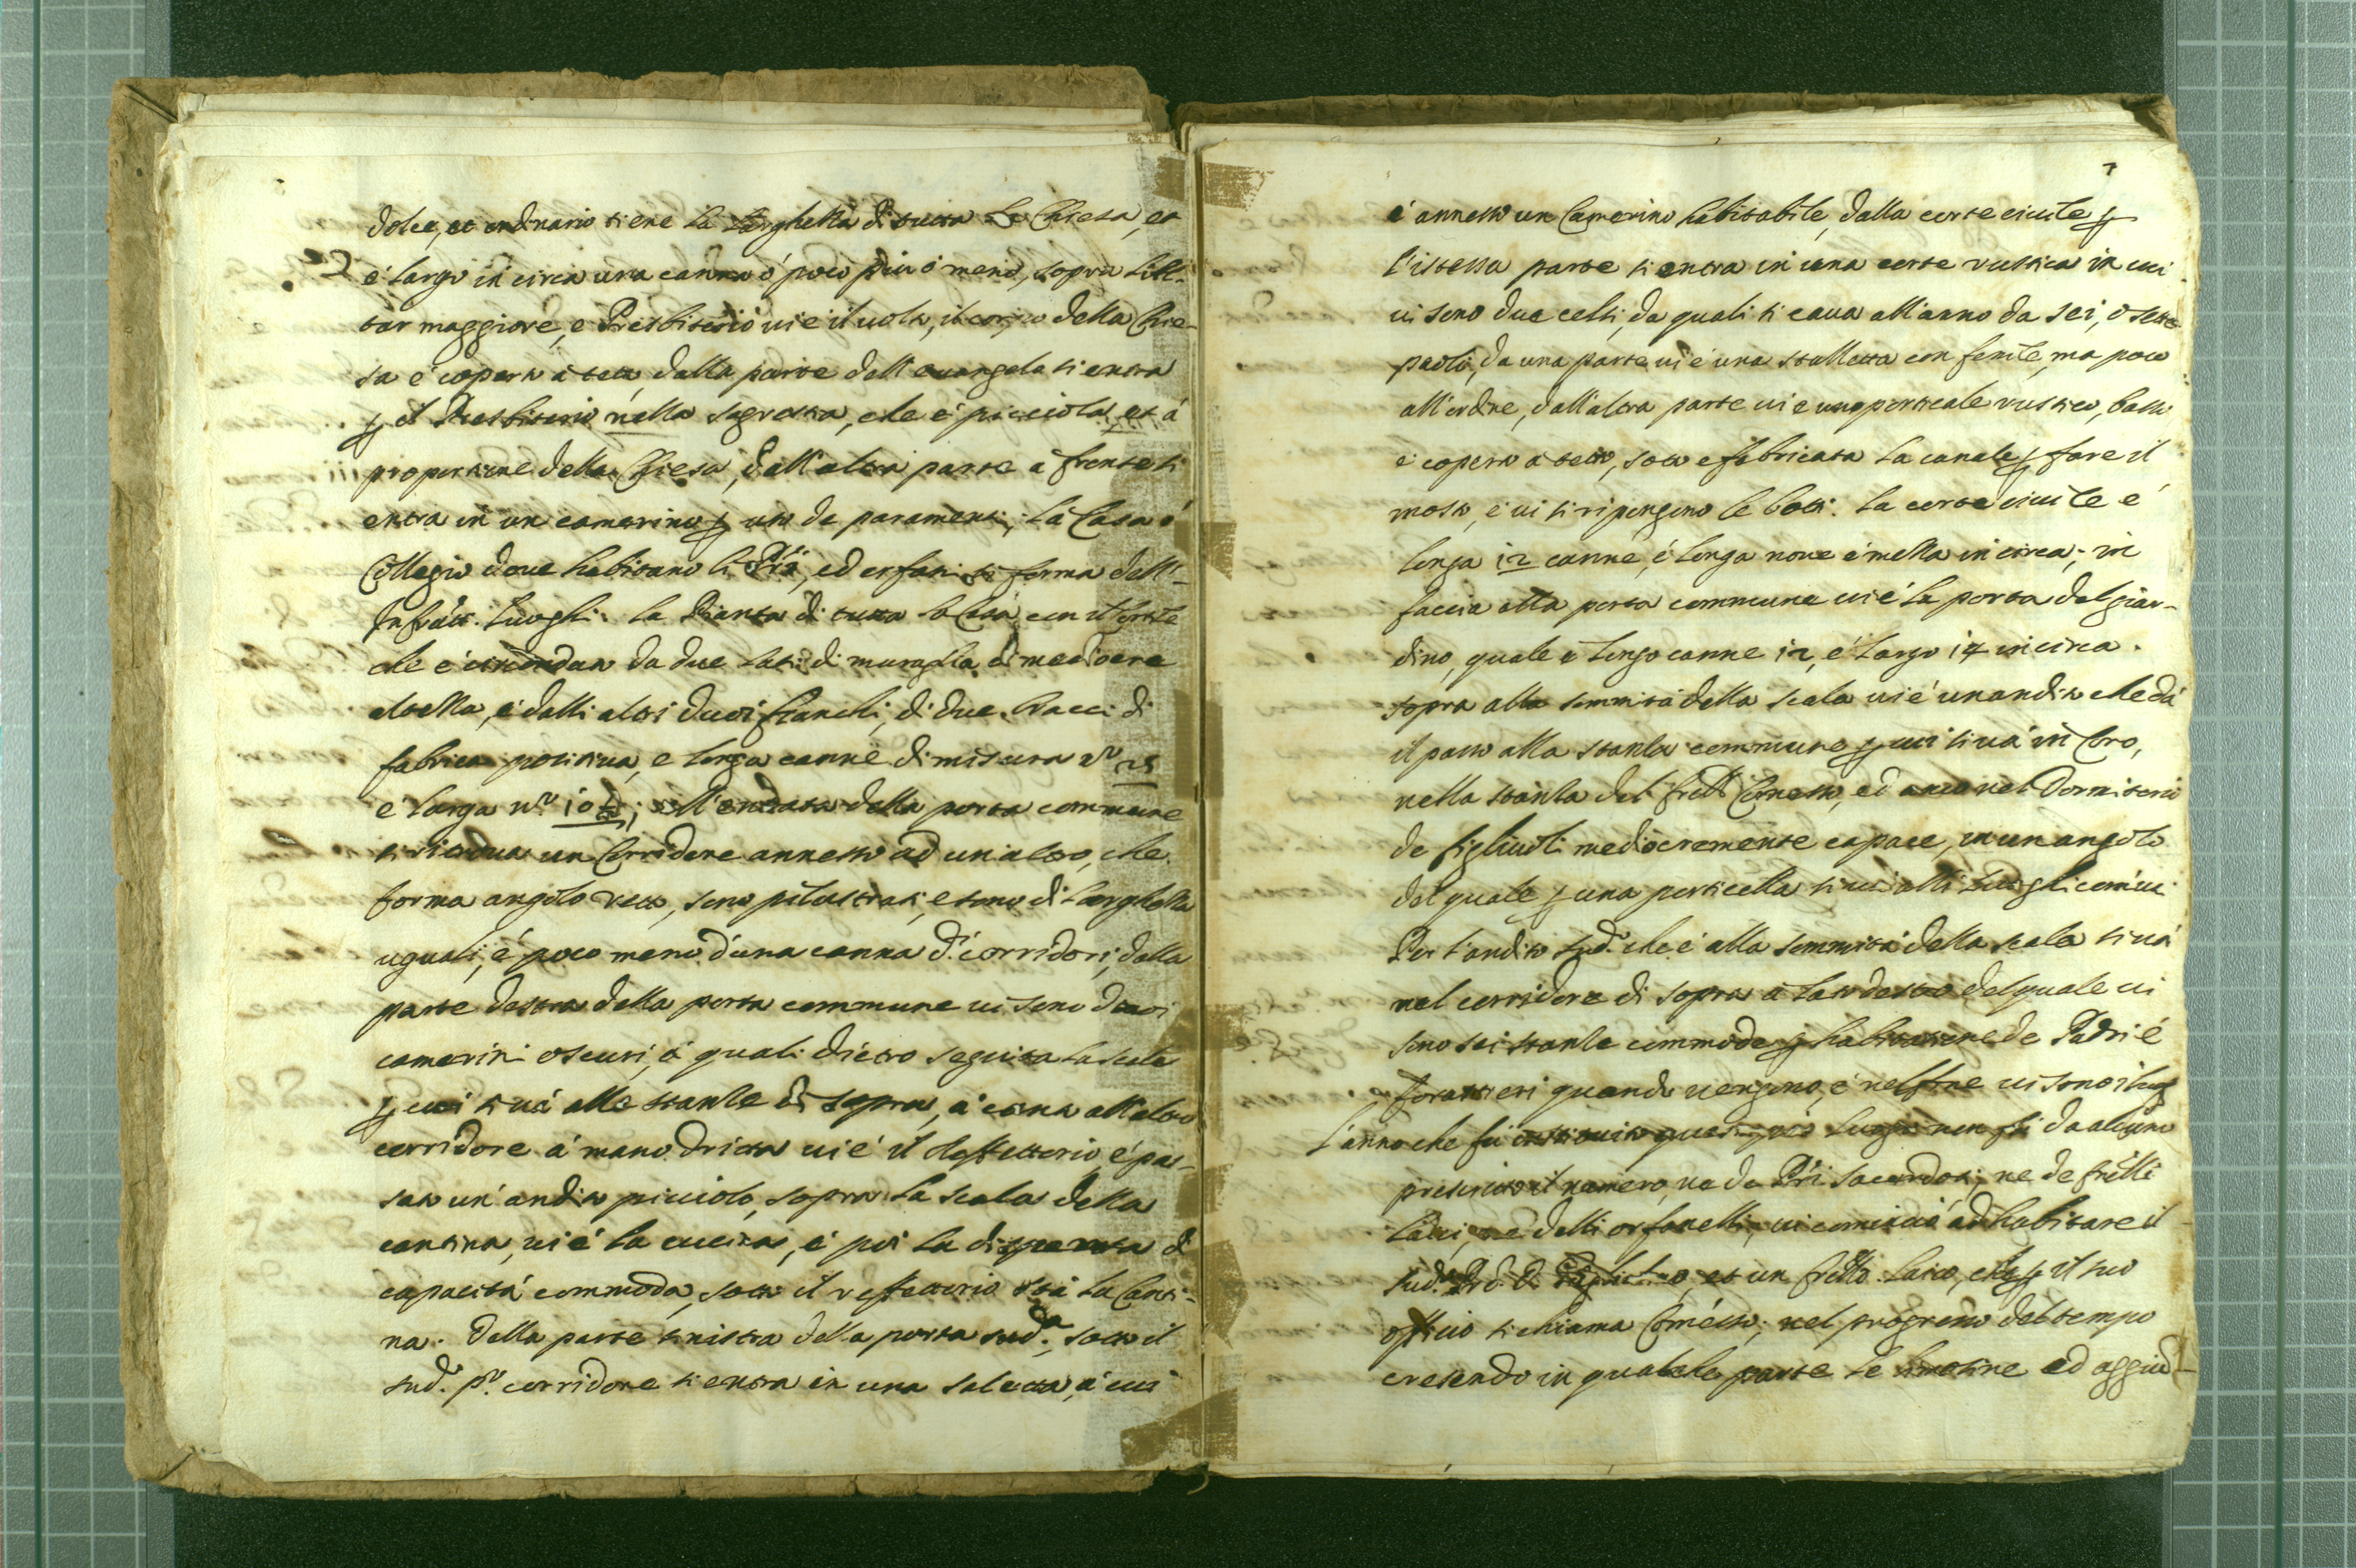 dolce, et ordinario tiene la larghezza di tutta la Chiesa, et
è largo in circa una canna ò poco più ò meno, sopra l'Al-
tar maggiore, e Presbiterio ui è il uolto, il corpo della Chie-
sa è coperto à tetto, dalla parte dell'euangelo si entra
p il Presbiterio nella sagrestia, che è picciola et à
proportione della Chiesa, dall'altra parte à fronte si
entra in un camerino p uso de paramenti, la Casa ò
Collegio doue habitano li Pri, ed orfani si forma dell'-
Infratti luoghi. la Pianta di tutta la Casa con il Cortile
che è circondata da due lati di muraglia di mediocre
altezza, è dalli altri duoi fianchi, di due bracci di
fabrica positiua, e longa canne di misura no 25
è larga no 10; all'entrata della porta commune
si ritroua un Corridore annesso ad un'altro, che
forma angolo retto, sono pilastrati, e sono di larghezza
uguali, è poco meno d'una canna di corridori, dalla
parte destra della porta commune ui sono duoi
camerini oscuri, à quali dietro seguita la scala
p cui si uà alle stanze di sopra, à cima all'altro
corridore à mano dritta ui è il Reffettorio, è pas-
sato un'andito picciolo, sopra la scala della
cantina, ui è la cucina, è poi la dispensa di
capacità commoda, sotto il reffettorio stà la Canti-
na. Dalla parte sinistra della porta sud.a, sotto il
sud.o p.o corridore si entra in una saletta, à cui
7
è annesso un Camerino habitabile, dalla corte ciuile p
l'istessa parte si entra in una corte rustica in cui
ui sono due celsi, da quali si caua all'anno da sei, ò sette
paoli, da una parte ui è una stalletta con fenile, ma poco
all'ordine, dall'altra parte ui è uno porticale rustico, basso
è coperto à tetto, sotto è fabricata la canale p fare il
mosto, è ui si ripongono le botti. la corte ciuile è
longa 12 canne, è longa noue è mezza in circa; in
faccia alla porta commune ui è la porta del giar-
dino, quale è longo canne 12, è largo 14 in circa.
sopra alla sommità della scala ui è un andito che dà
il passo alla stanza commune p cui si uà in Coro,
nella stanza del frello Comesso, ed anco nel Dormitorio
de figliuoli mediocremente capace, in un angolo
del quale p una porticella si uà alli luoghi comuni.
Per l'andito sud.o che è alla sommità della scala si uà
nel corridore di sopra à lato destro del quale ui
sono sei stanze commode p habitatione de Padri è
forastieri quando uengono, è nel fine ui sono i luog
L'anno che fù instituito questo pio luogo non fù da alcuno
prescritto il numero, ne de Pri sacerdoti, ne de frelli
laici, ne delli orfanelli, ui cominciò ad habitare il
sud.o Prd. D. et un frello laico, che p il suo
officio si chiama Comesso; nel progresso del tempo
crescendo in qualche parte le limosine ed aggiu-